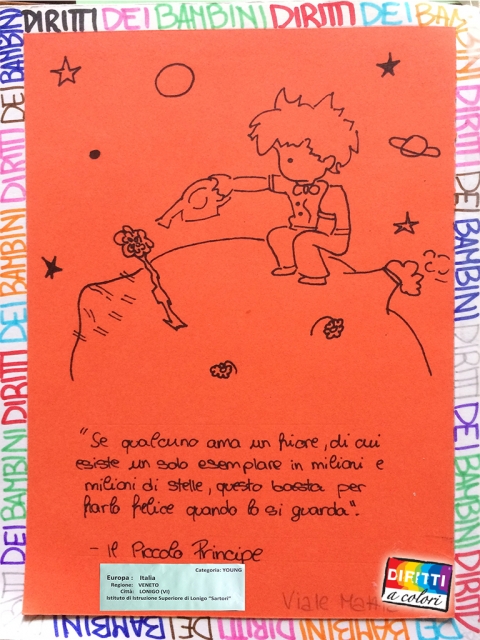 DIRITTI DEI BAMBINI DIRITTI DEI BAMBINI DIRITTI DEI BAMBINI
DEI BAMBINI DIRITTI DEI BAMBINI DIRITTI DEI BAMBINI DIRITTI DEI BAMBINI
DIRITTI DEI BAMBINI DIRITTI DEI BAMBINI
"Se qualcuno ama un fiore, di cui
esiste un solo esemplare in milioni e
milioni di stelle, questo basta per
farlo felice quando lo si guarda".
- Il Piccolo Principe
Categoria: YOUNG
Europa : Italia
Regione: VENETO
Città: LONIGO (VI)
Istituto di Istruzione Superiore di Lonigo "Sartori"
DIRITTI
a colori
Viale
DEI BAMBINI DIRITTI DEI BAMBINI